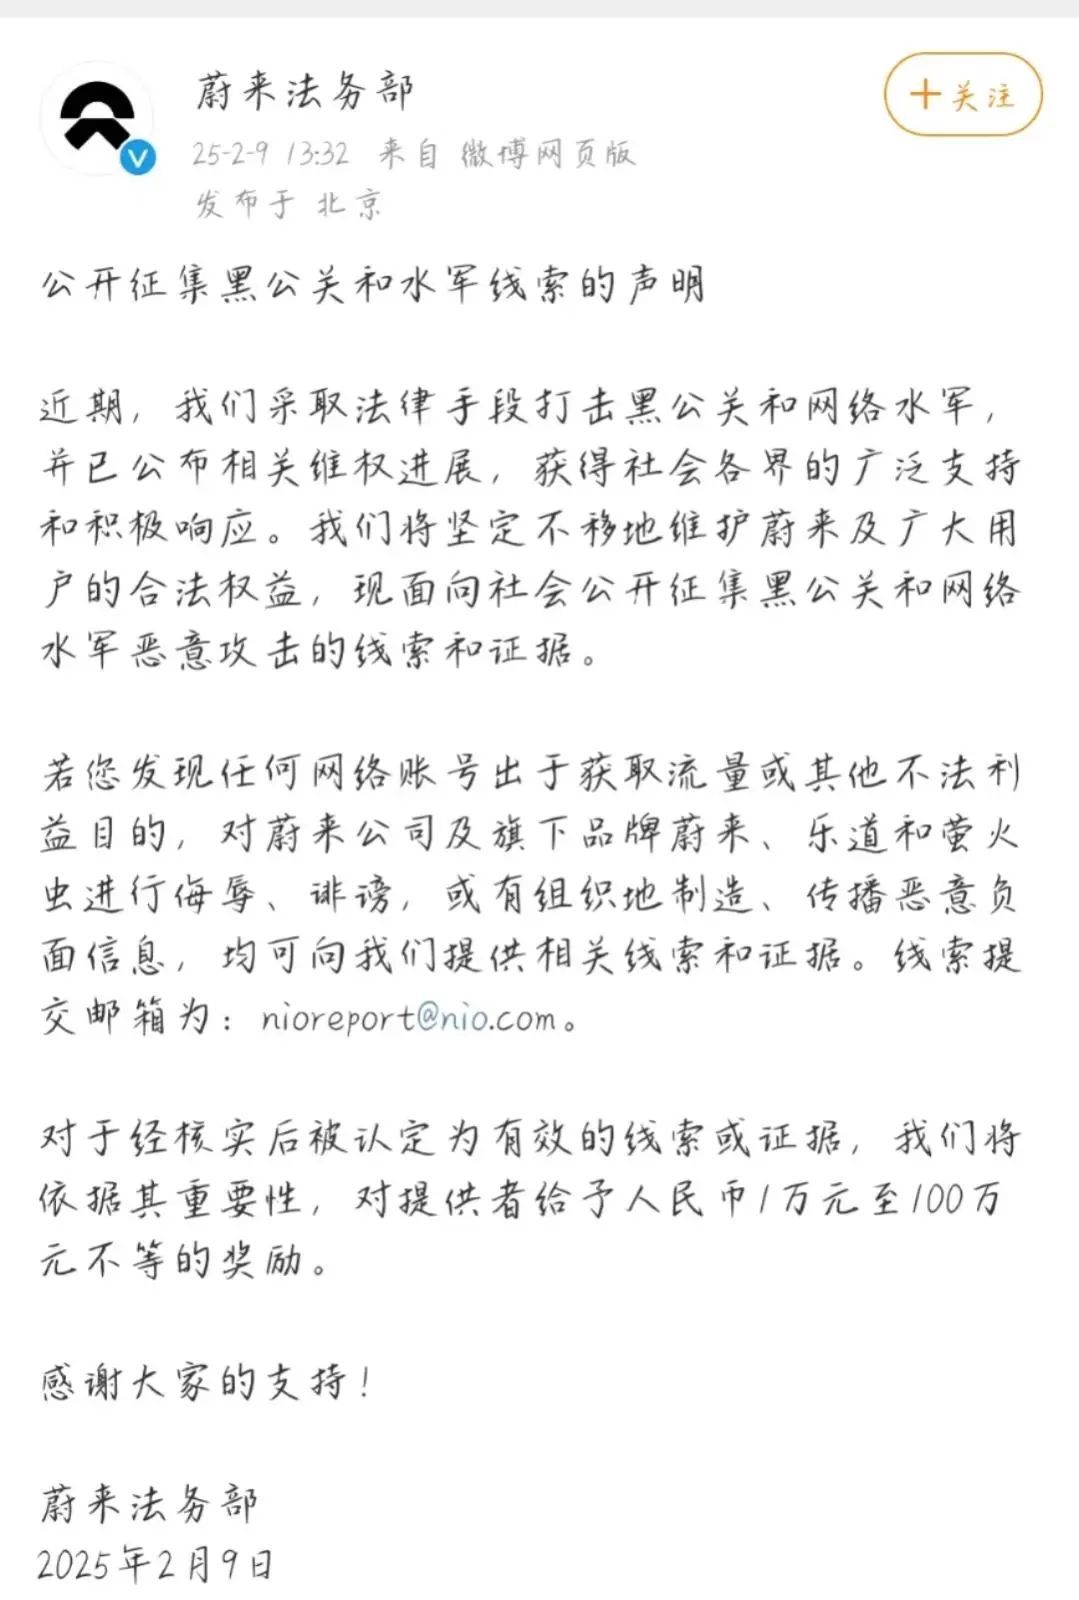 蔚来法务部
+关注
25-2-9 13:32 来自 微博网页版
发布于 北京
公开征集黑公关和水军线索的声明
近期，我们采取法律手段打击黑公关和网络水军，
并已公布相关维权进展，获得社会各界的广泛支持
和积极响应。我们将坚定不移地维护蔚来及广大用
户的合法权益，现面向社会公开征集黑公关和网络
水军恶意攻击的线索和证据。
若您发现任何网络账号出于获取流量或其他不法利
益目的，对蔚来公司及旗下品牌蔚来、乐道和萤火
虫进行侮辱、诽谤，或有组织地制造、传播恶意负
面信息，均可向我们提供相关线索和证据。线索提
交邮箱为：nioreport@nio.com。
对于经核实后被认定为有效的线索或证据，我们将
依据其重要性，对提供者给予人民币1万元至100万
元不等的奖励。
感谢大家的支持！
蔚来法务部
2025年2月9日